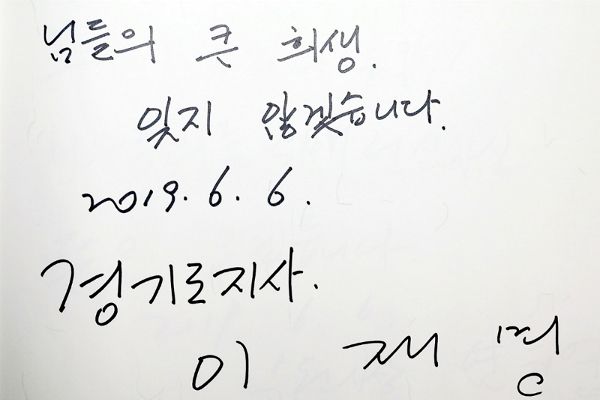 님들의 큰 희생.
잊지 않겠습니다.
2019. 6. 6.
경기도지사.
이 재 명